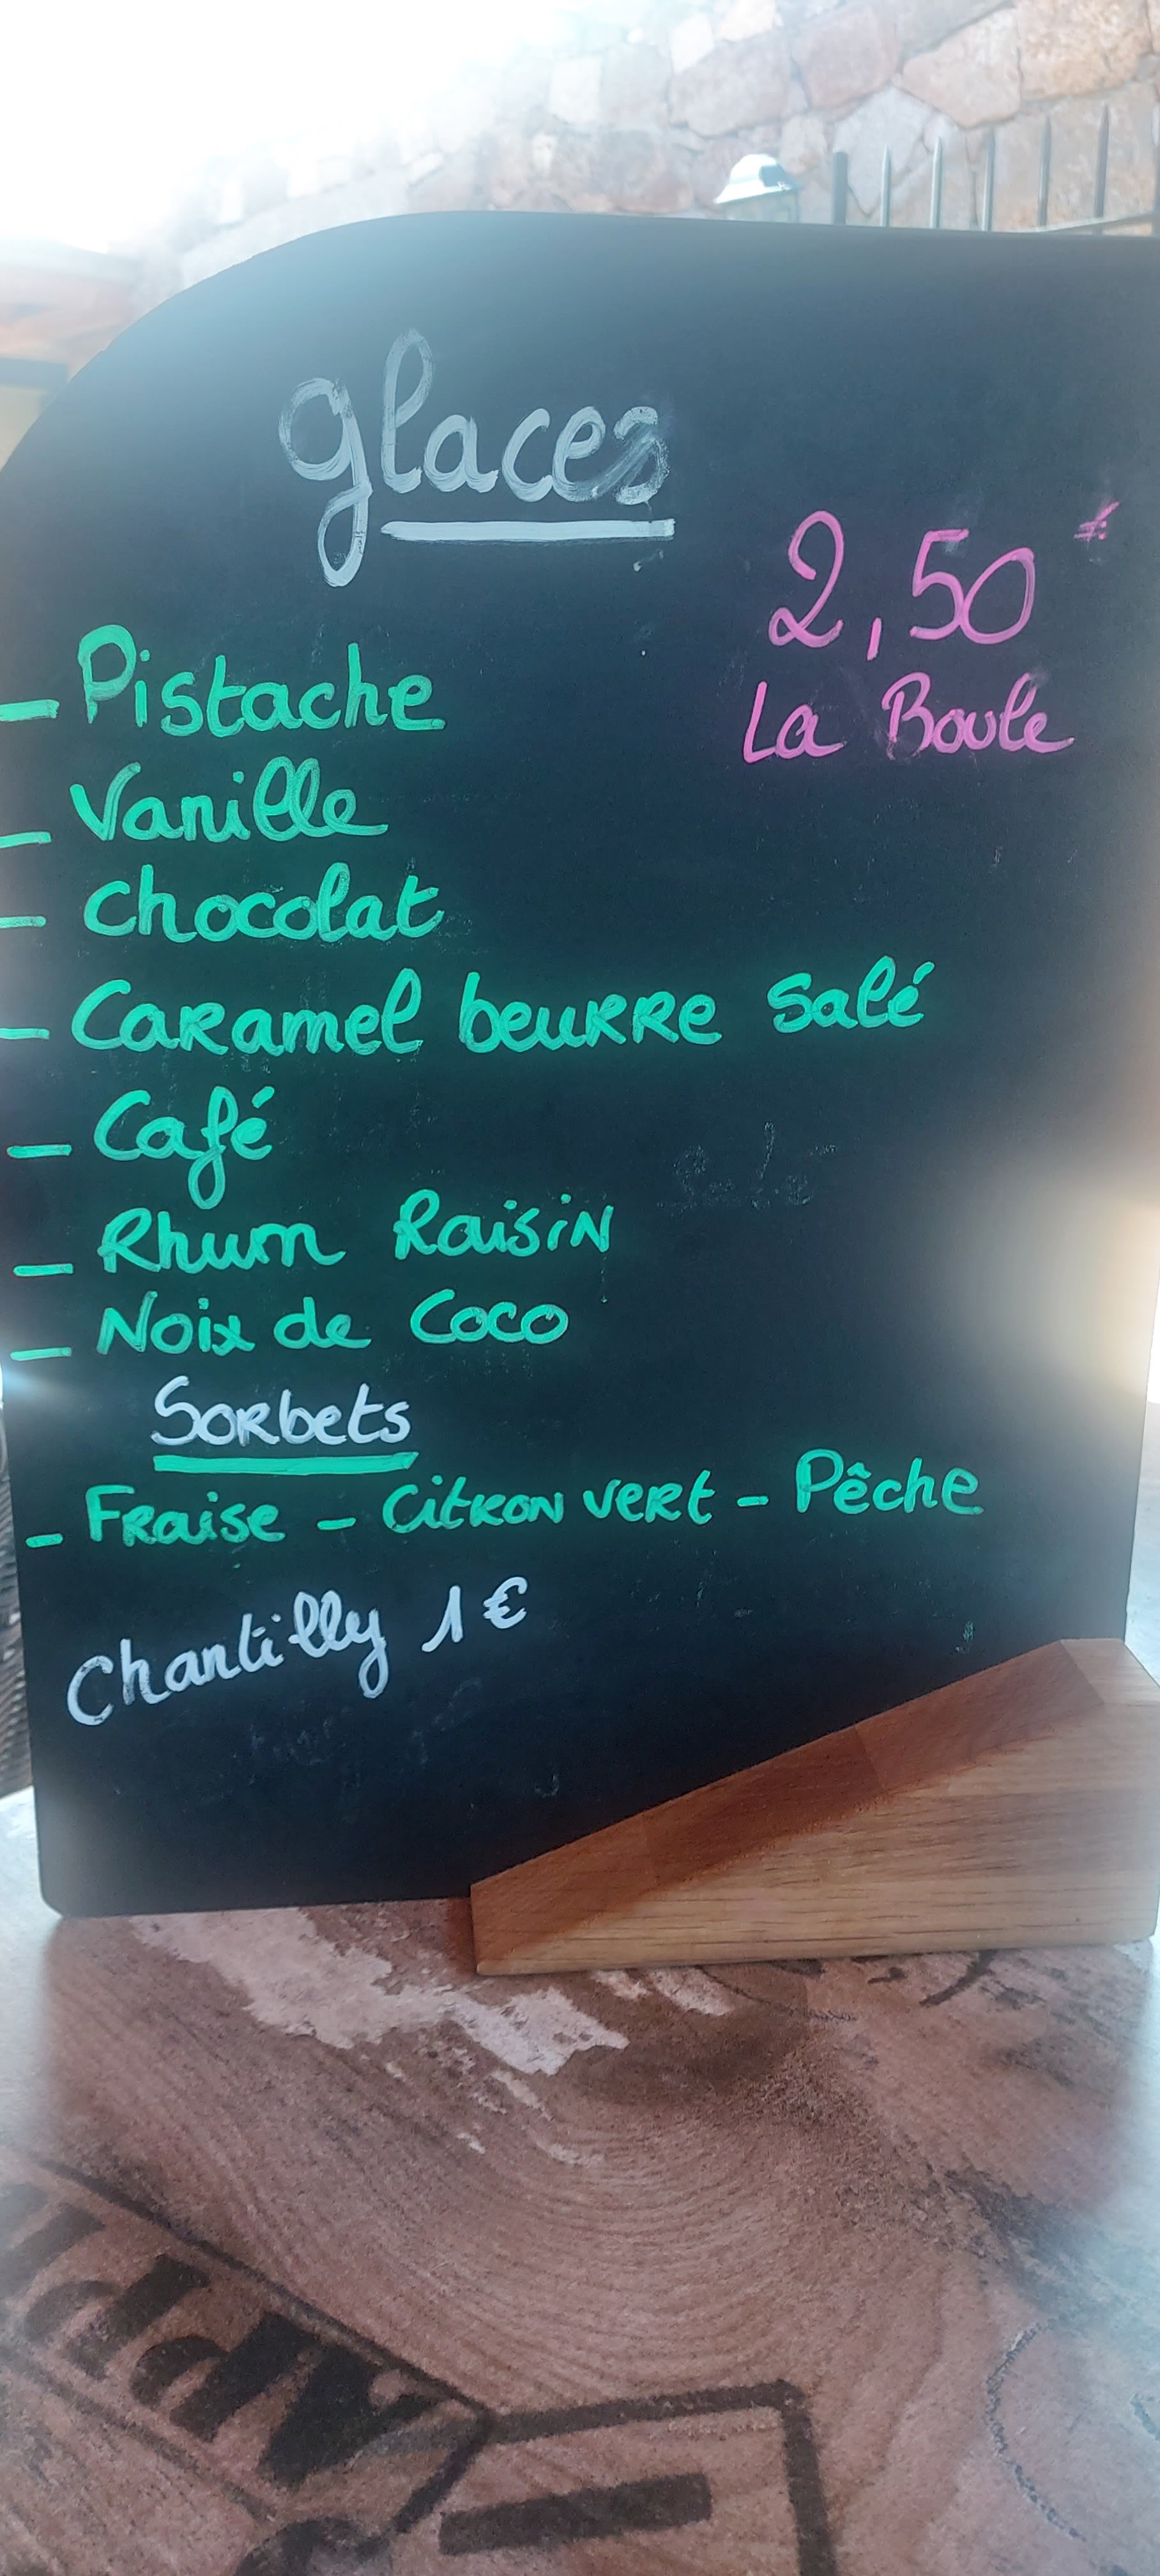 glaces
2,50 €
La Boule
- Pistache
- Vanille
- Chocolat
- Caramel beurre salé
- Café
- Rhum Raisin
- Noix de Coco
Sorbets
- Fraise - Citron vert - Pêche
Chantilly 1 €